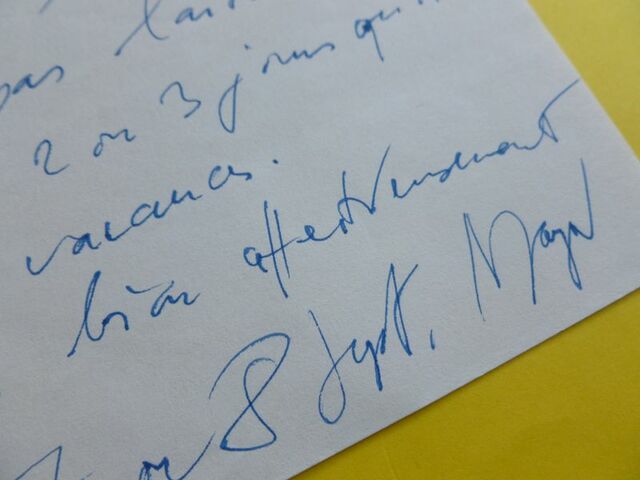 pas
2 ou 3 jours qu
vacances.
bien affectueusement
7 ou 8 Sept.